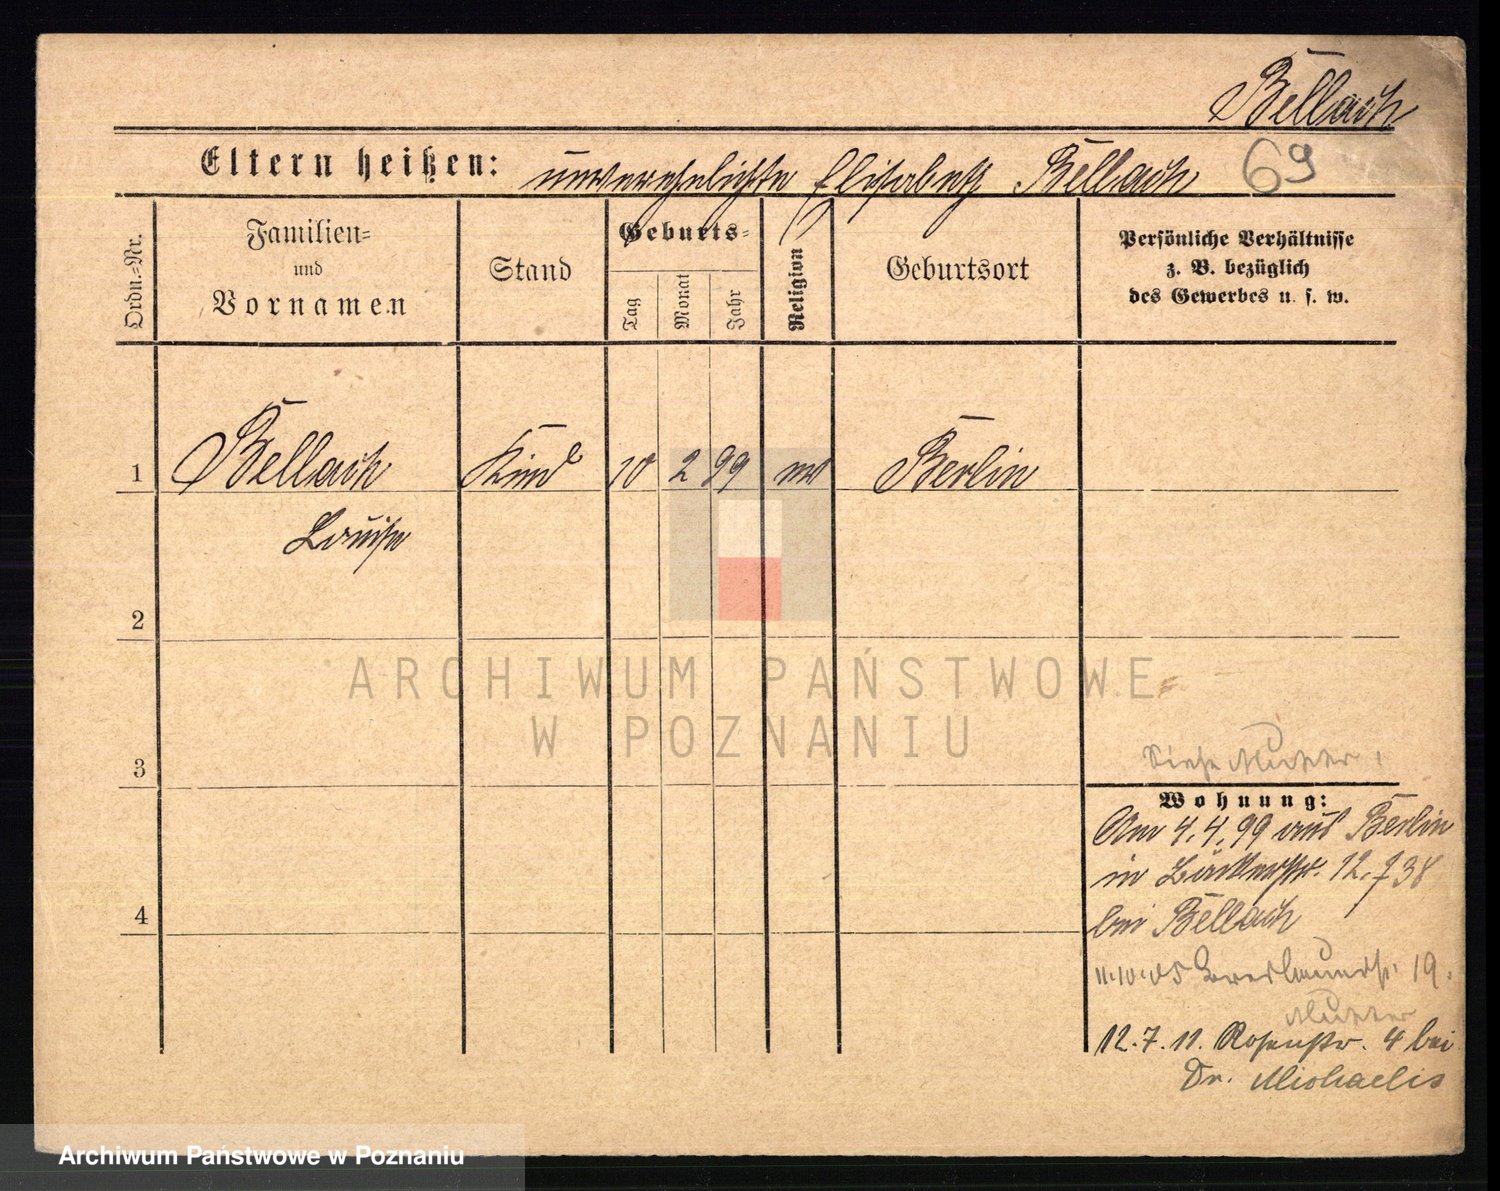 Bellach
Eltern heißen: unverehelichte Elisabeth Bellach 69
Ordn.-Nr.
Familien-
und
Vornamen
Stand
Geburts-
Tag
Monat
Jahr
Religion
Geburtsort
Persönliche Verhältnisse
z. B. bezüglich
des Gewerbes u. s. w.
1 Bellach Kind 10 2 99 Berlin
Louise
2
ARCHIWUM PAŃSTWOWE
W POZNANIU
3 Siehe Mutter
Wohnung:
Am 4.4.99 aus Berlin
in Bäckerstr. 12
4 bei Bellach
11.10.05 19.
Mutter
12.7.11. Rosenstr. 4 bei
Dr. Michaelis
Archiwum Państwowe w Poznaniu